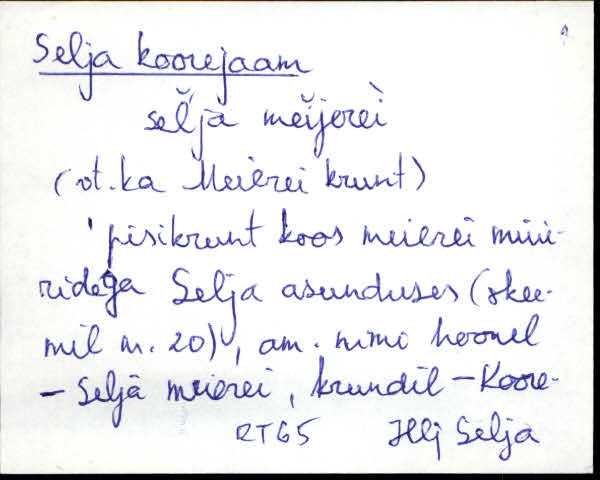 Selja koorejaam
sel'jà meijerèi
(vt. ka Meierei krunt)
'pisikrunt koos meierei müü-
ridega Selja asunduses (skee-
mil nr. 20), am. nimi hoonel
– Selja meierei, krundil – Koore-
RTG5 Hlj Selja